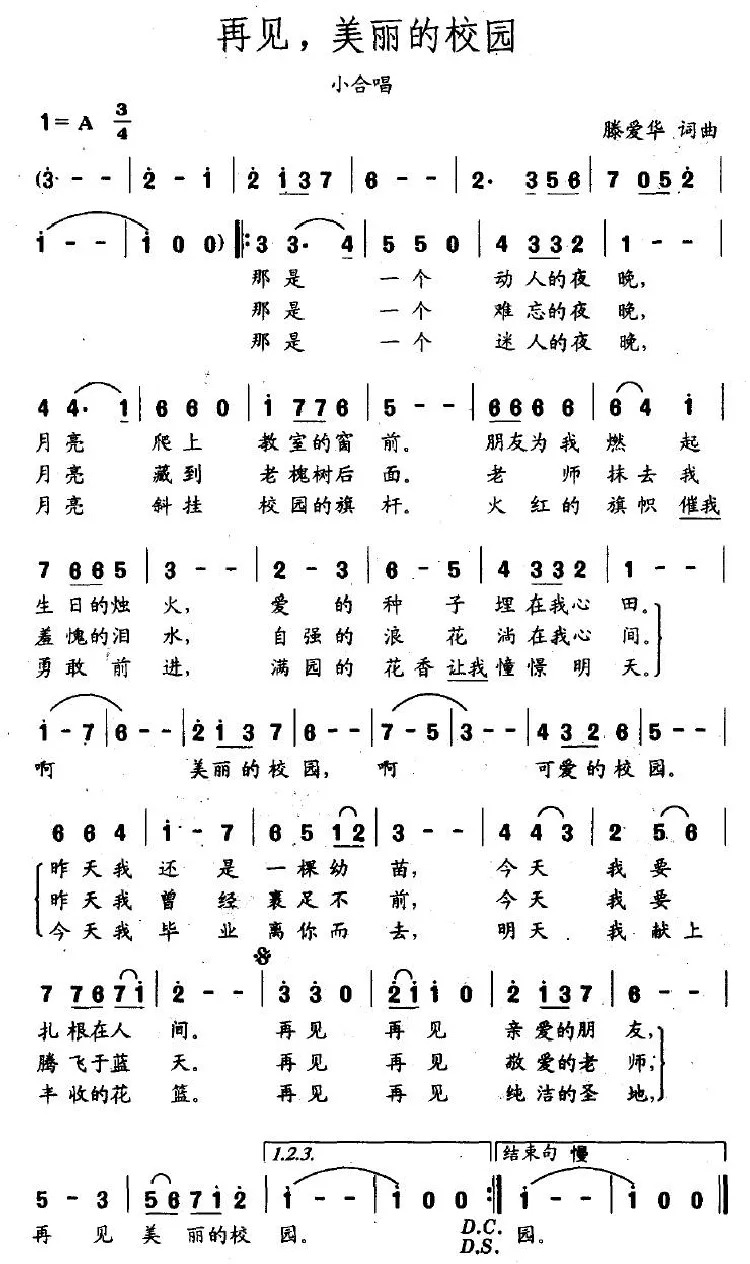 再见，美丽的校园
小合唱
1= A 3/4
滕爱华 词曲
(3 - - | 2 - 1 | 2 1 3 7 | 6 - - | 2· 3 5 6 | 7 0 5 2 |
1 - - | 1 0 0 ) |: 3 3· 4 | 5 5 0 | 4 3 3 2 | 1 - - |
那是 一个 动人的夜晚，
那是 一个 难忘的夜晚，
那是 一个 迷人的夜晚，
4 4· 1 | 6 6 0 | 1 7 7 6 | 5 - - | 6 6 6 6 | 6 4 1 |
月亮 爬上 教室的窗 前。 朋友为我 燃 起
月亮 藏到 老槐树后 面。 老 师 抹去我
月亮 斜挂 校园的旗 杆。 火红的 旗帜 催我
7 6 6 5 | 3 - - | 2 - 3 | 6 - 5 | 4 3 3 2 | 1 - - |
生日的烛 火， 爱 的 种 子 埋在我心 田。
羞愧的泪 水， 自强的 浪 花 淌在我心 间。
勇敢前 进， 满园的 花香让我 憧憬明 天。
1 - 7 | 6 - - | 2 1 3 7 | 6 - - | 7 - 5 | 3 - - | 4 3 2 6 | 5 - - |
啊 美丽的校 园， 啊 可爱的校 园。
6 6 4 | 1 - 7 | 6 5 1 2 | 3 - - | 4 4 3 | 2 5 6 |
昨天我 还 是 一棵幼 苗， 今天 我 要
昨天我 曾 经 裹足不 前， 今天 我 要
今天我 毕 业 离你而 去， 明天 我献上
7 7 6 7 1 | 2 - - | 3 3 0 | 2 1 1 0 | 2 1 3 7 | 6 - - |
扎根在人 间。 再见 再见 亲爱的朋 友，
腾飞于蓝 天。 再见 再见 敬爱的老 师，
丰收的花 篮。 再见 再见 纯洁的圣 地，
1.2.3. 结束句 慢
5 - 3 | 5 6 7 1 2 | 1 - - | 1 0 0 :| 1 - - | 1 0 0 ‖
再 见 美 丽的校 园。 D.C. 园。
D.S.